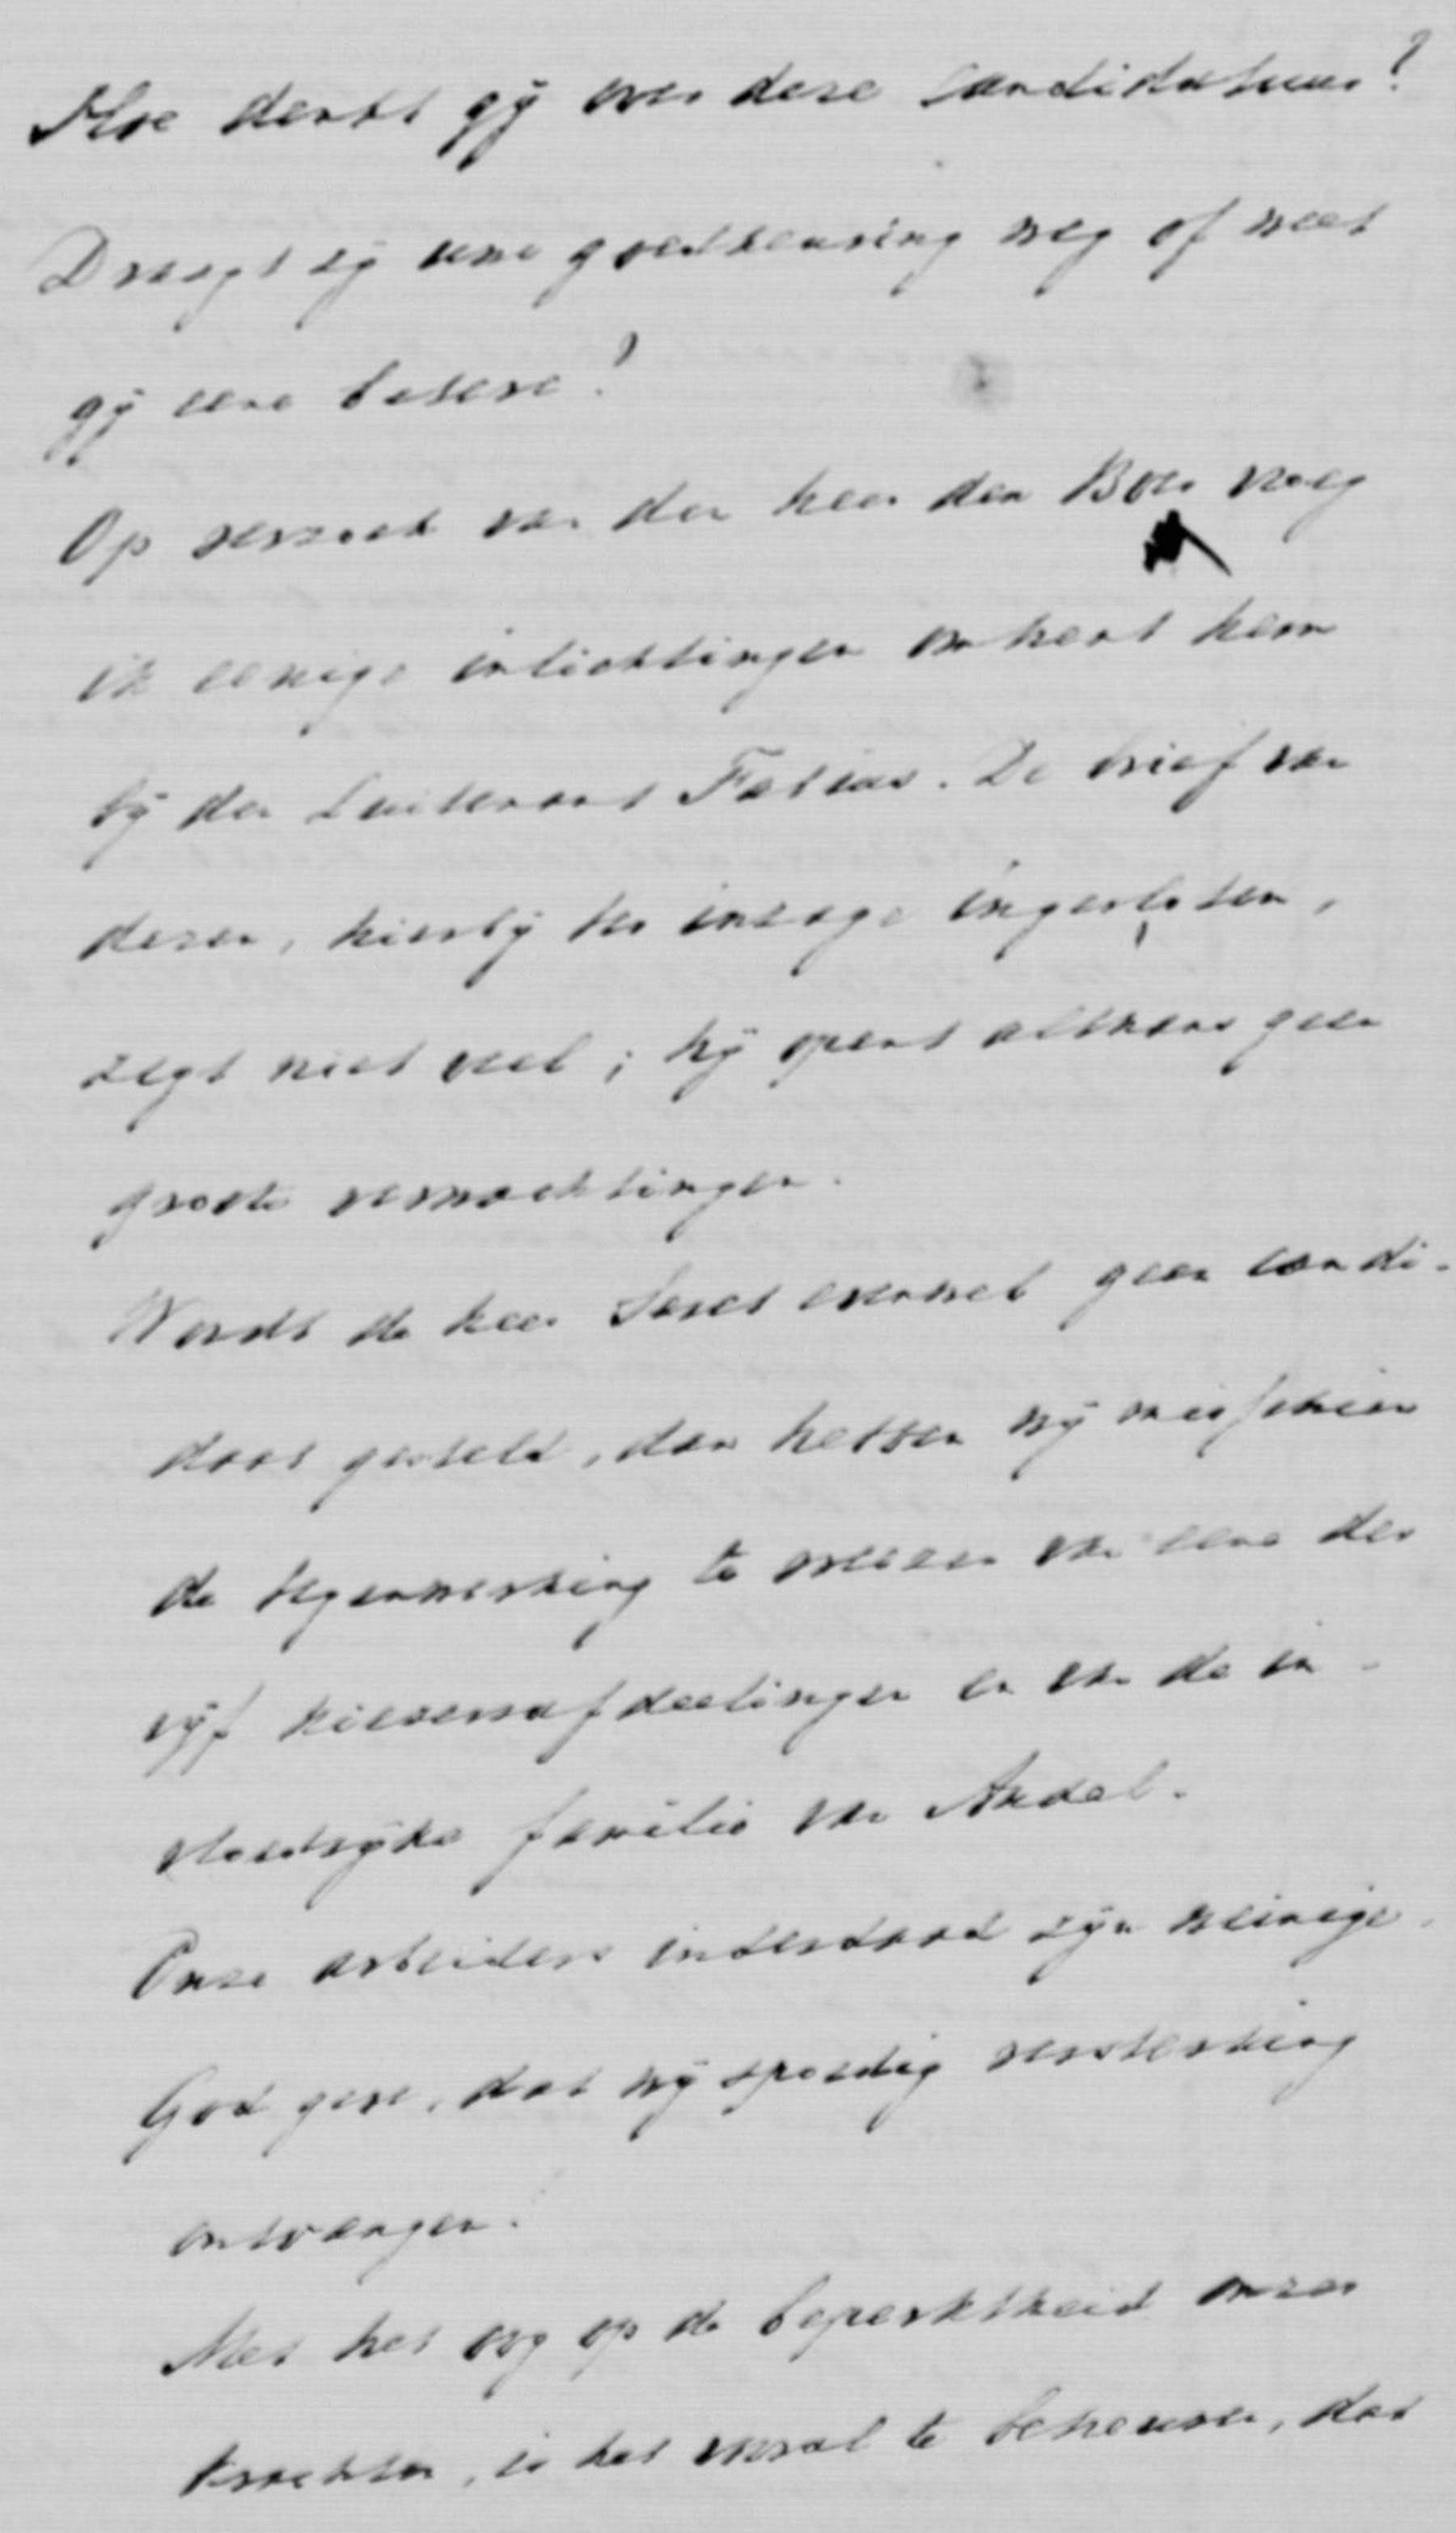 Hoe denkt gij over deze candidatuur?
Draagt zij uwe goedkeuring weg of weet
gij eene betere?
Op verzoek van den heer den Boer vroeg
ik eenige inlichtingen omtrent hem
bij den Luitenant Fabius. De brief van
dezen, hierbij ter inzage ingesloten,
zegt niet veel; hij opent althans geen
groote verwachtingen.
Wordt de heer evenwel geen candi-
daat gesteld, dan hebben wij misschien
de tegenwerking te vreezen van eene der
vijf kiezersafdeelingen en van de in-
vloedrijke familie van Andel.
Onze arbeiders inderdaad zijn weinige.
God geve, dat wij spoedig versterking
ontvangen!
Met het oog op de beperktheid onzer
krachten, is het vooral te betreuren, dat